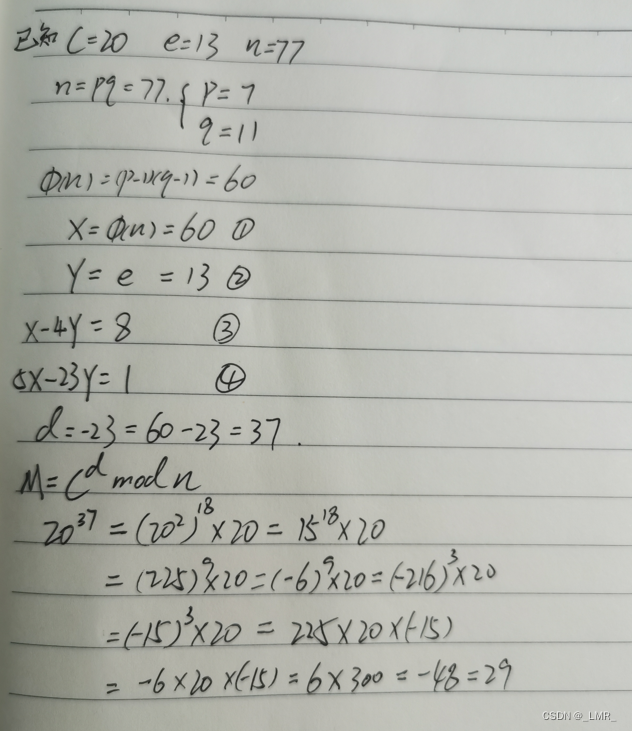 已知 C=20 e=13 n=77
n=pq=77. { p=7
q=11
Φ(n)=(p-1)(q-1)=60
X=Φ(n)=60 ①
Y=e=13 ②
X-4Y=8 ③
5X-23Y=1 ④
d=-23=60-23=37.
M=C^d mod n
20^37=(20^2)^18×20=15^18×20
=(225)^9×20=(-6)^9×20=(-216)^3×20
=(-15)^3×20=225×20×(-15)
=-6×20×(-15)=6×300=-48=29
CSDN @_LMR_